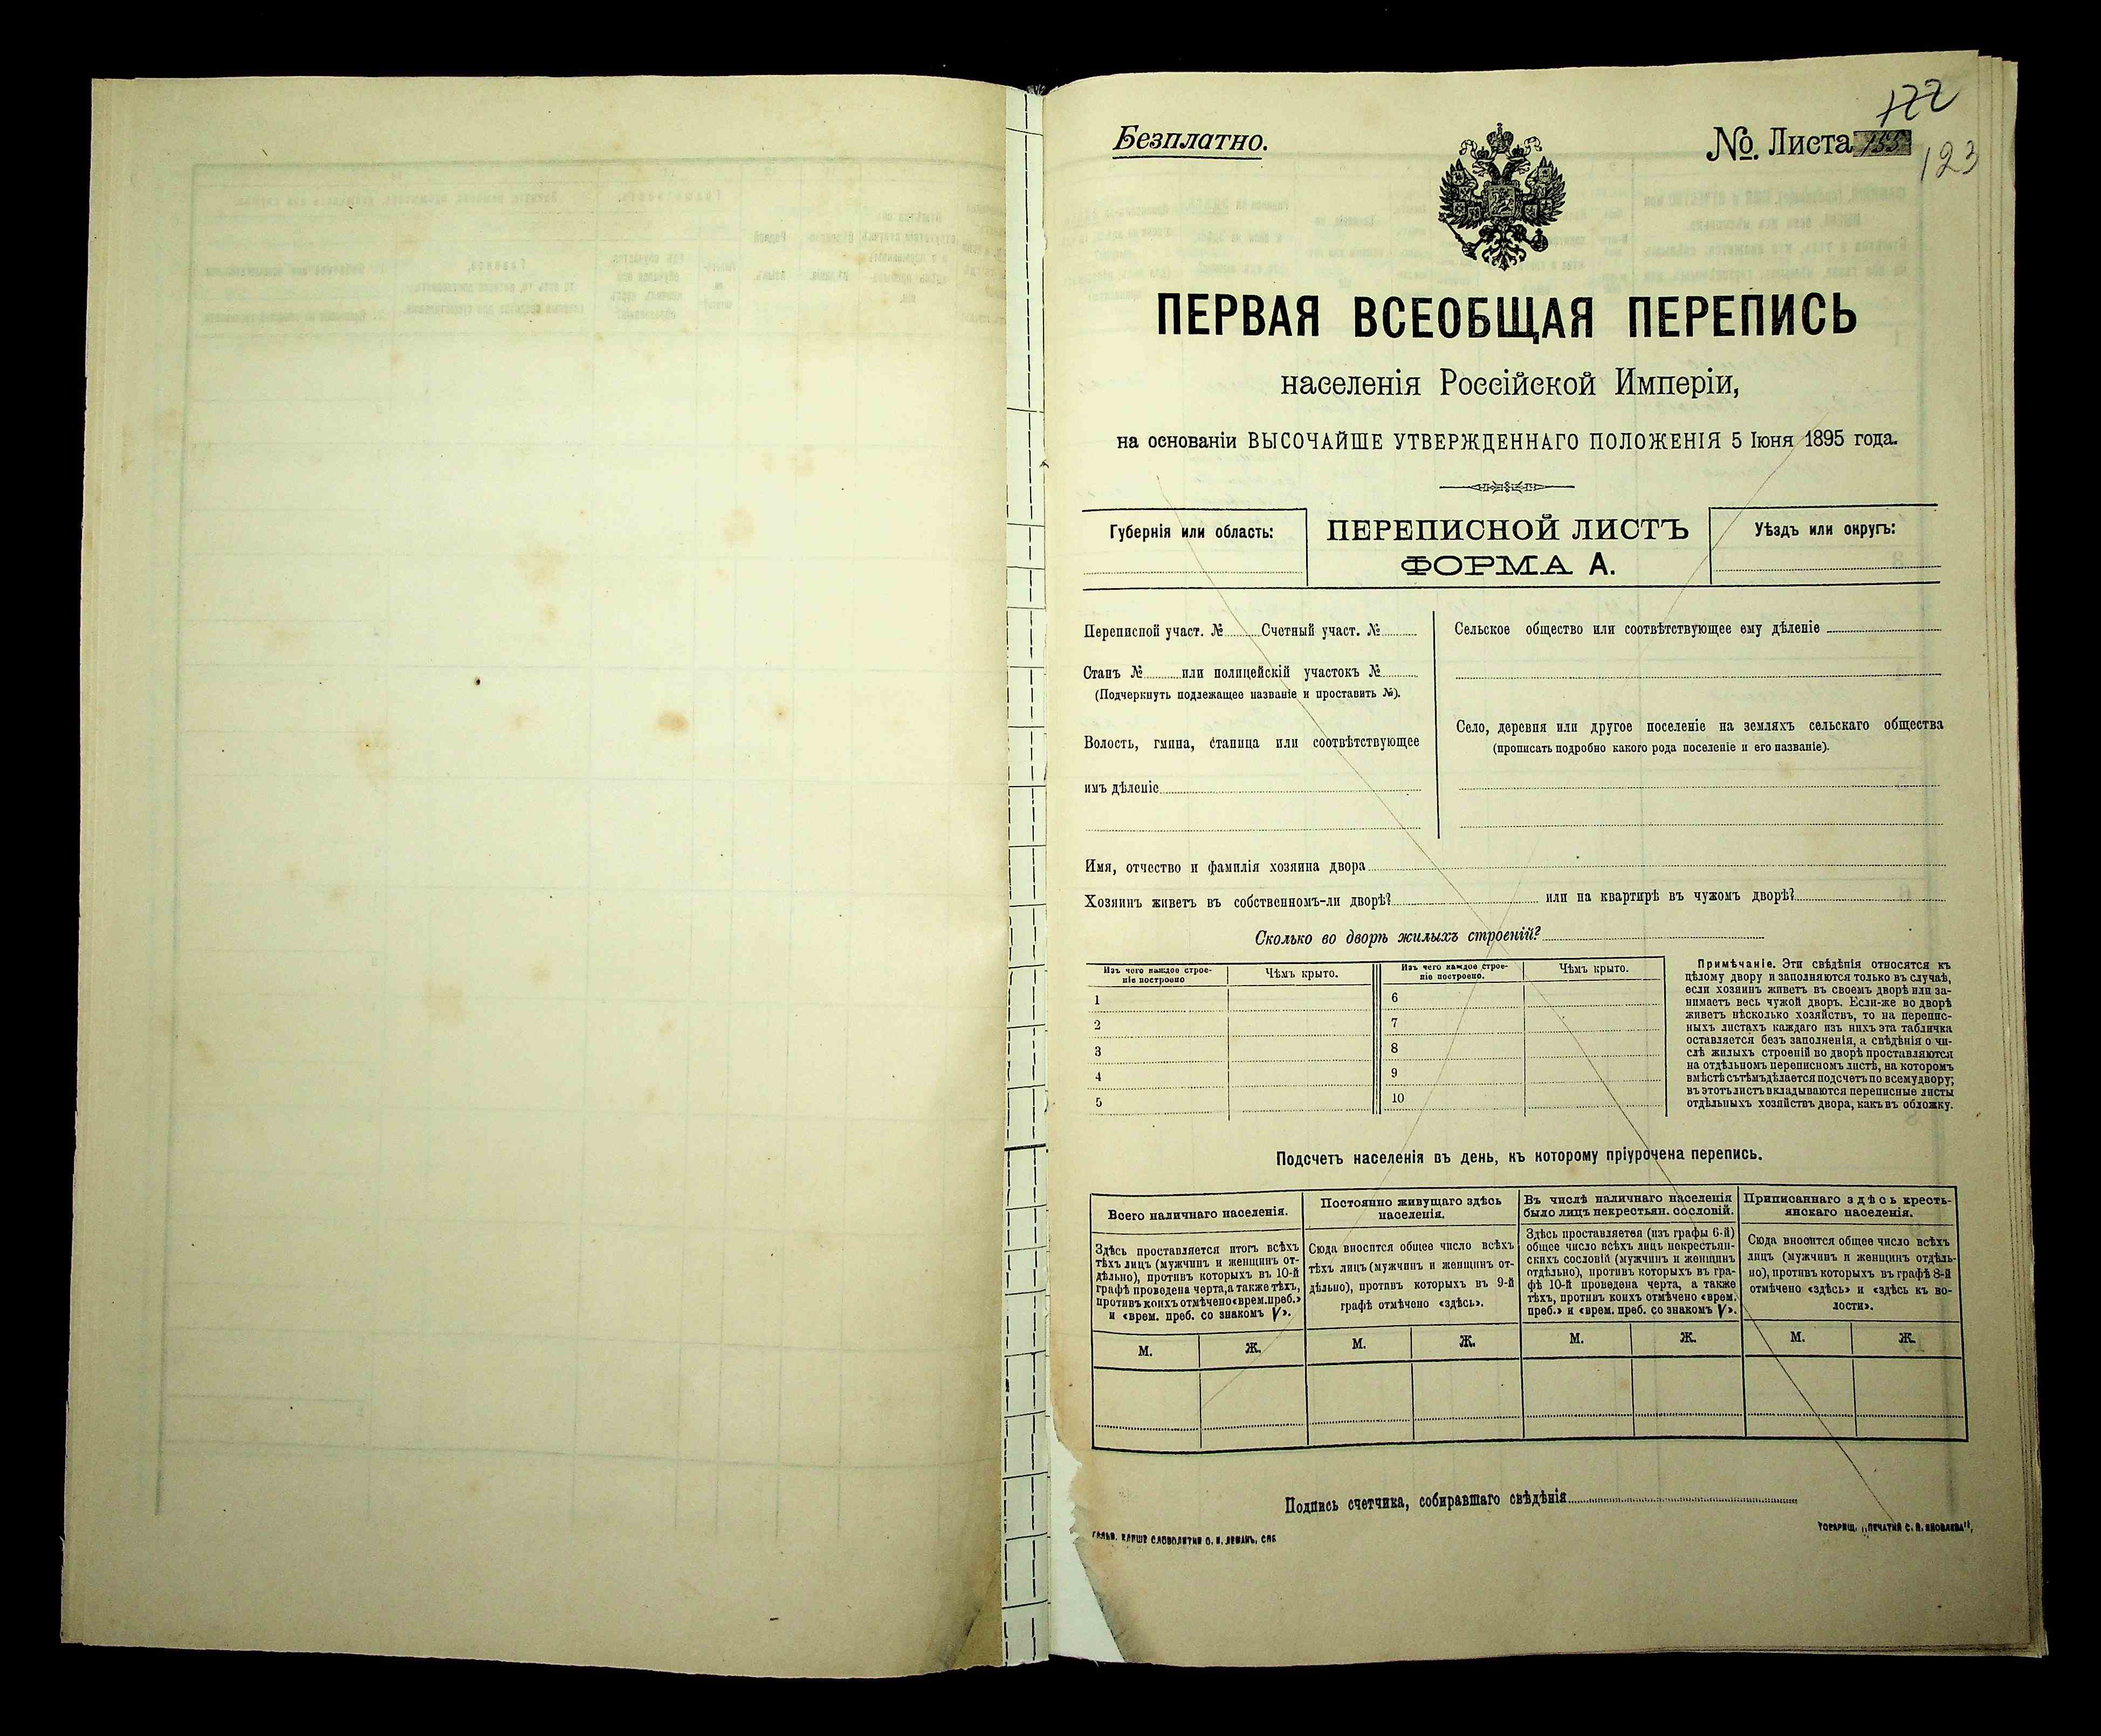 122
Безплатно.
№. Листа 155
123
ПЕРВАЯ ВСЕОБЩАЯ ПЕРЕПИСЬ
населенія Россійской Имперіи,
на основаніи ВЫСОЧАЙШЕ УТВЕРЖДЕННАГО ПОЛОЖЕНІЯ 5 Іюня 1895 года.
Губернія или область:
ПЕРЕПИСНОЙ ЛИСТЪ
ФОРМА А.
Уѣздъ или округъ:
Переписной участ. № Счетный участ. №
Станъ № или полицейскій участокъ №
(Подчеркнуть подлежащее названіе и проставить №).
Волость, гмина, станица или соотвѣтствующее
имъ дѣленіе
Сельское общество или соотвѣтствующее ему дѣленіе
Село, деревня или другое поселеніе на земляхъ сельскаго общества
(прописать подробно какого рода поселеніе и его названіе).
Имя, отчество и фамилія хозяина двора
Хозяинъ живетъ въ собственномъ-ли дворѣ? или на квартирѣ въ чужомъ дворѣ?
Сколько во дворѣ жилыхъ строеній?
Изъ чего каждое строе-
ніе построено
Чѣмъ крыто.
Изъ чего каждое строе-
ніе построено.
Чѣмъ крыто.
1
2
3
4
5
6
7
8
9
10
Примѣчаніе. Эти свѣдѣнія относятся къ
цѣлому двору и заполняются только въ случаѣ,
если хозяинъ живетъ въ своемъ дворѣ или за-
нимаетъ весь чужой дворъ. Если-же во дворѣ
живетъ нѣсколько хозяйствъ, то на перепис-
ныхъ листахъ каждаго изъ нихъ эта табличка
оставляется безъ заполненія, а свѣдѣнія о чи-
слѣ жилыхъ строеній во дворѣ проставляются
на отдѣльномъ переписномъ листѣ, на которомъ
вмѣстѣ съ тѣмъ дѣлается подсчетъ по всему двору;
въ этотъ листъ вкладываются переписные листы
отдѣльныхъ хозяйствъ двора, какъ въ обложку.
Подсчетъ населенія въ день, къ которому пріурочена перепись.
Всего наличнаго населенія.
Здѣсь проставляется итогъ всѣхъ
тѣхъ лицъ (мужчинъ и женщинъ от-
дѣльно), противъ которыхъ въ 10-й
графѣ проведена черта, а также тѣхъ,
противъ коихъ отмѣчено «врем. преб.»
и «врем. преб. со знакомъ V».
Постоянно живущаго здѣсь
населенія.
Сюда вносится общее число всѣхъ
тѣхъ лицъ (мужчинъ и женщинъ от-
дѣльно), противъ которыхъ въ 9-й
графѣ отмѣчено «здѣсь».
Въ числѣ наличнаго населенія
было лицъ некрестьян. сословій.
Здѣсь проставляется (изъ графы 6-й)
общее число всѣхъ лицъ некрестьян-
скихъ сословій (мужчинъ и женщинъ
отдѣльно), противъ которыхъ въ гра-
фѣ 10-й проведена черта, а также
тѣхъ, противъ коихъ отмѣчено «врем.
преб.» и «врем. преб. со знакомъ V».
Приписаннаго здѣсь кресть-
янскаго населенія.
Сюда вносится общее число всѣхъ
лицъ (мужчинъ и женщинъ отдѣль-
но), противъ которыхъ въ графѣ 8-й
отмѣчено «здѣсь» и «здѣсь къ во-
лости».
М. Ж. М. Ж. М. Ж. М. Ж.
Подпись счетчика, собиравшаго свѣдѣнія
ГАЛЬВ. КЛИШЕ СЛОВОЛИТНИ О. И. ЛЕМАНЪ, СПБ
ТОВАРИЩ. „ПЕЧАТНЯ С. П. ЯКОВЛЕВА“,